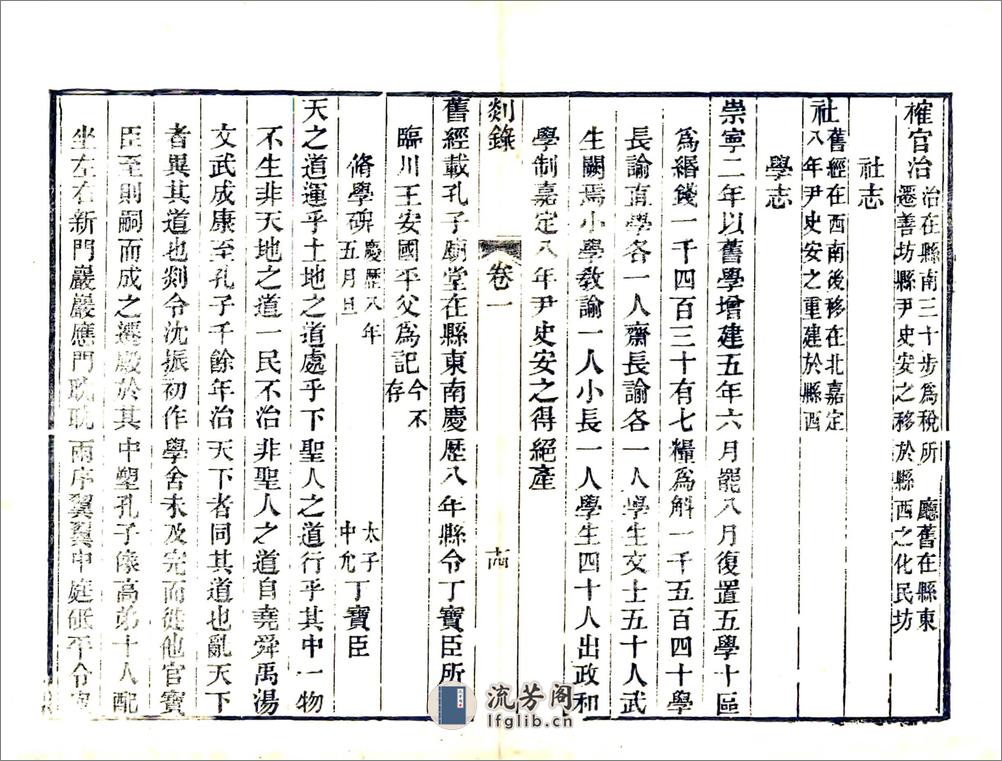 榷官治治在縣南三十步爲稅所廳舊在縣東
遷善坊縣尹史安之移於縣西之化民坊
社志
社舊經在西南後移在北嘉定
八年尹史安之重建於縣西
學志
崇寧二年以舊學增建五年六月罷八月復置五學十區
爲緡錢一千四百三十有七糧爲斛一千五百四十學
長諭直學各一人齋長諭各一人學生文士五十人武
生闕焉小學敎諭一人小長一人學生四十人出政和
學制嘉定八年尹史安之得絕產
剡錄 卷一
舊經載孔子廟堂在縣東南慶歷八年縣令丁寶臣所
臨川王安國平父爲記今不
存
脩學碑慶歷八年
五月旦
太子
中允丁寶臣
天之道運乎上地之道處乎下聖人之道行乎其中一物
不生非天地之道一民不治非聖人之道自堯舜禹湯
文武成康至孔子千餘年治天下者同其道也亂天下
者異其道也剡令沈振初作學舍未及完而徙他官寶
臣至則嗣而成之遷殿於其中塑孔子像高弟十人配
坐左右新門巖巖應門耽耽兩序翼翼中庭砥平令
流芳阁
lfglib.cn